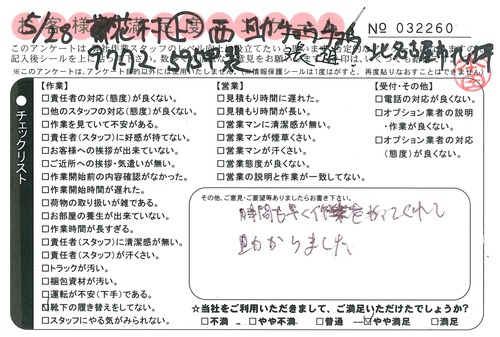 5/28
No 032260
【作業】
□責任者の対応(態度)が良くない。
□他のスタッフの対応(態度)が良くない。
□作業を見ていて不安がある。
□責任者(スタッフ)に好感が持てない。
□お客様への挨拶が出来ていない。
□ご近所への挨拶・気遣いが無い。
□作業開始前の内容確認がなかった。
□作業開始時間が遅れた。
□荷物の取り扱いが雑である。
□お部屋の養生が出来ていない。
□作業時間が長すぎる。
□責任者(スタッフ)に清潔感が無い。
□責任者(スタッフ)が汗くさい。
□トラックが汚い。
□梱包資材が汚い。
□運転が不安(下手)である。
□靴下の履き替えをしてない。
□スタッフにやる気がみられない。
【営業】
□見積もり時間に遅れた。
□見積もり時間が長い。
□営業マンに清潔感が無い。
□営業マンが煙草くさい。
□営業マンが汗くさい。
□営業態度が良くない。
□営業の説明と作業が一致してない。
【受付・その他】
□電話の対応が良くない。
□オプション業者の説明
・作業が良くない。
□オプション業者の対応
(態度)が良くない。
チェックリスト
その他、ご意見・ご要望等ありましたらお書き下さい。
時間も早く作業をやってくれて
助かりました
☆当社をご利用いただきまして、ご満足いただけたでしょうか?
□不満 □やや不満 □普通 □やや満足 □満足